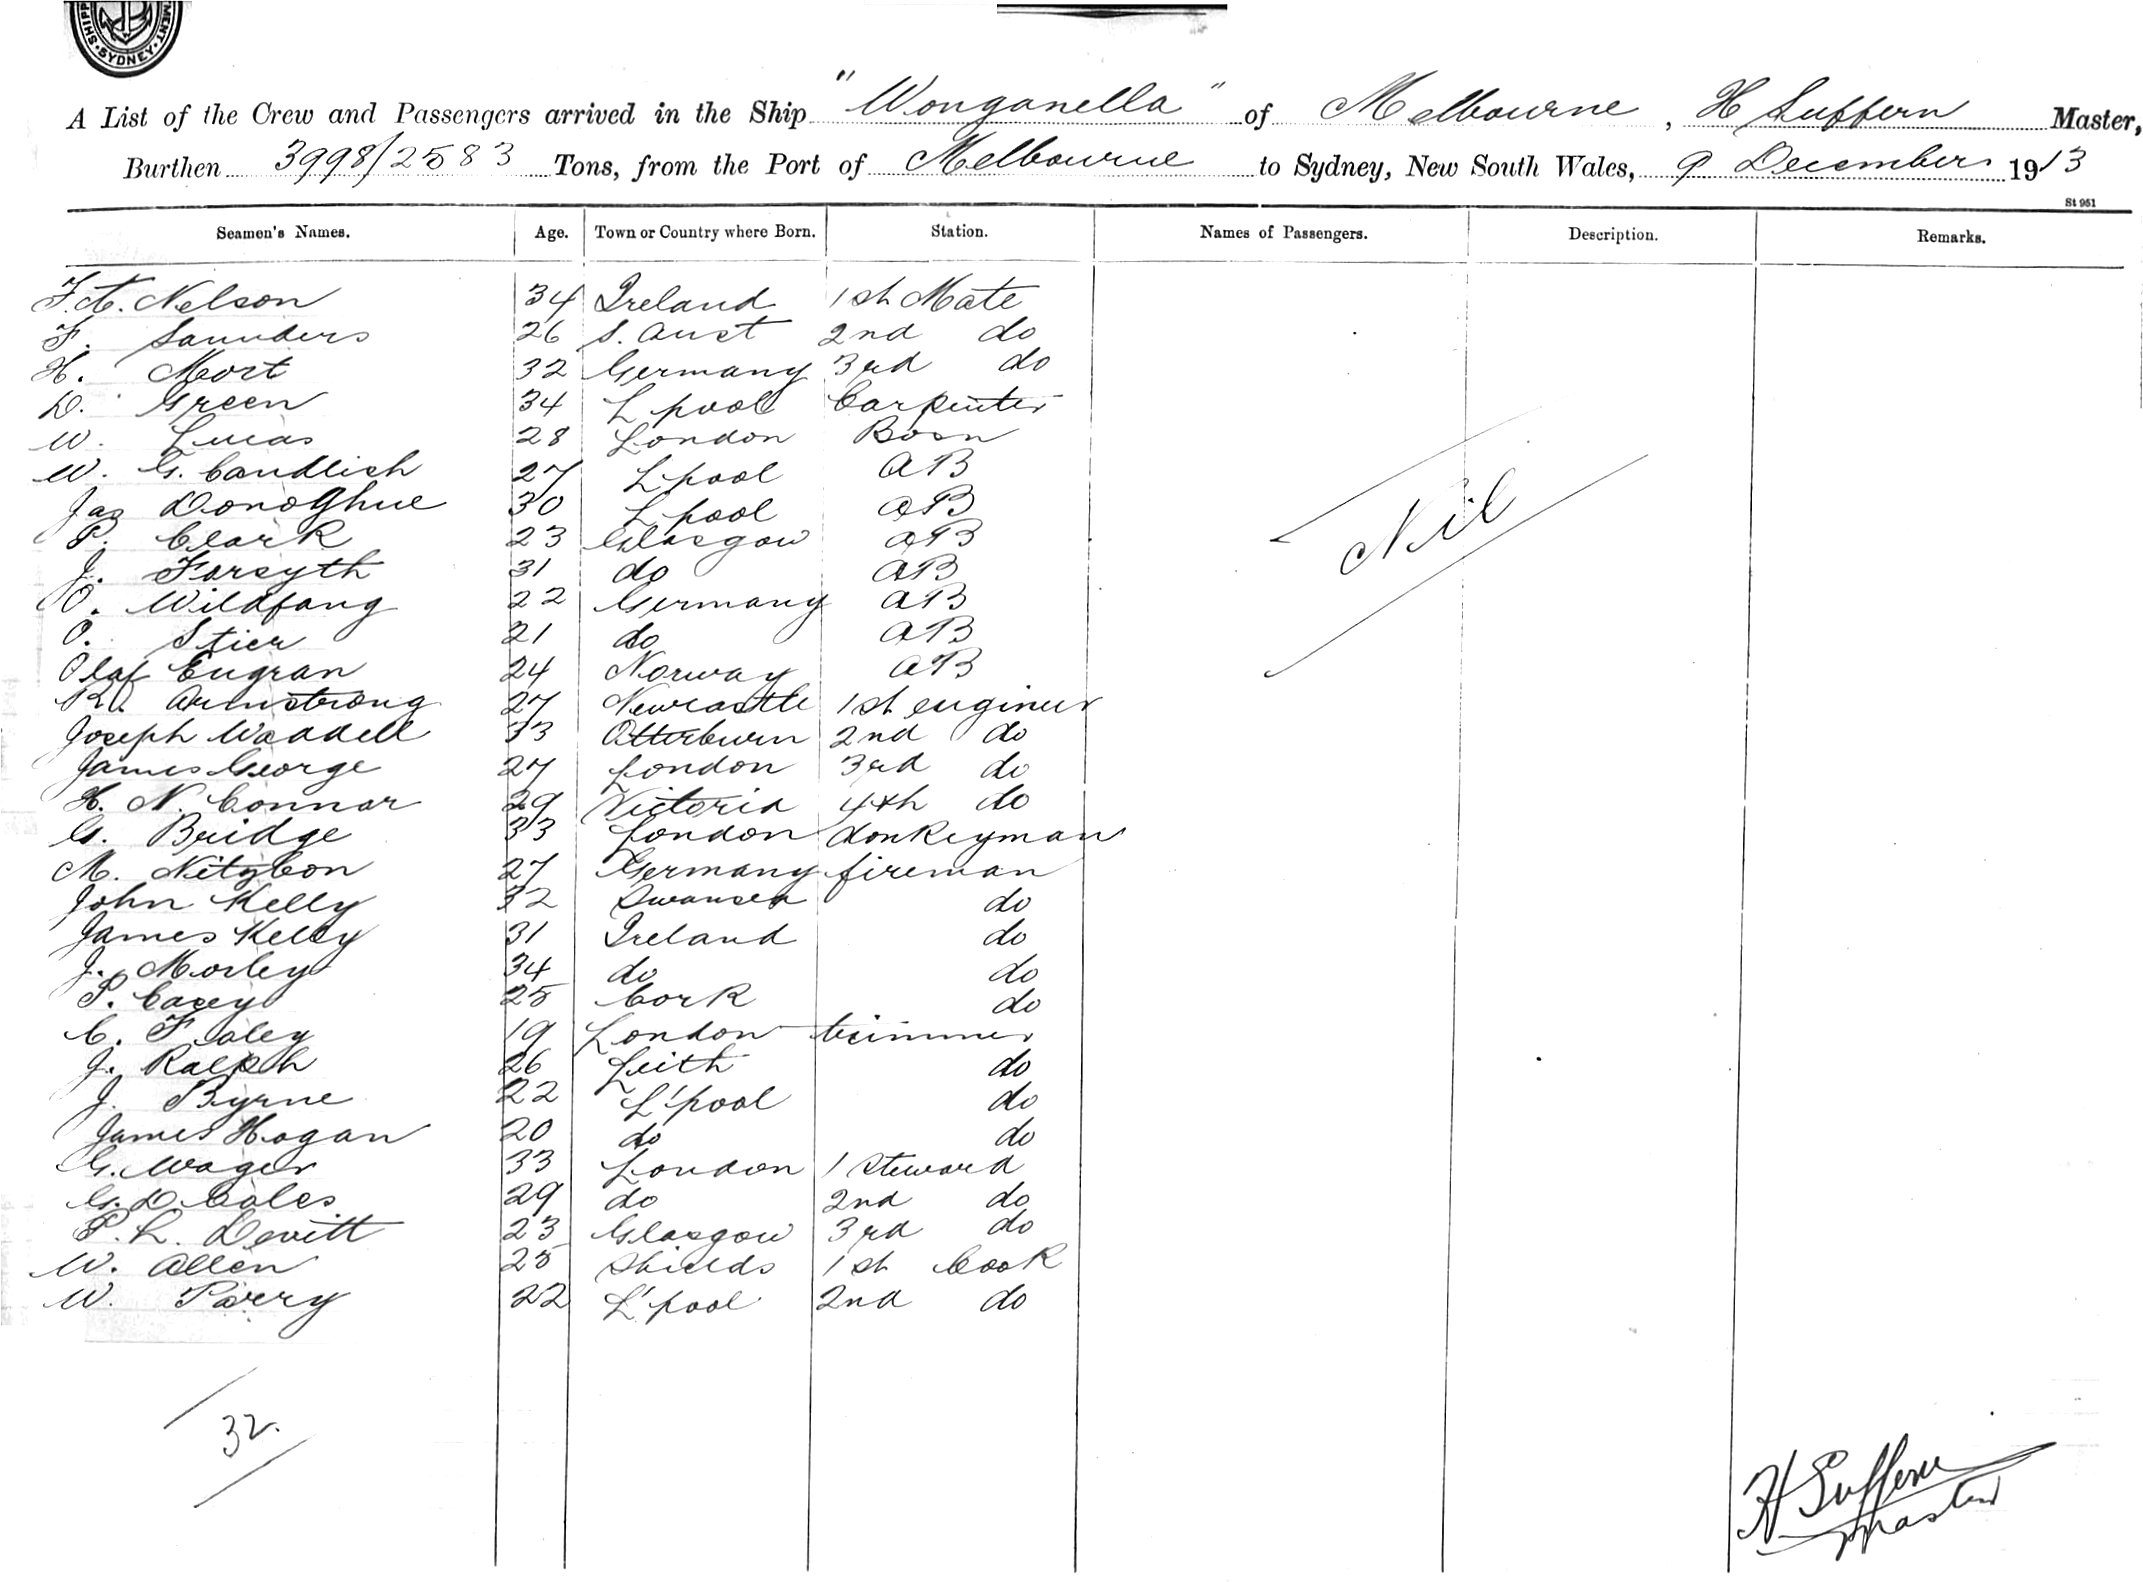 SHIPP MENT · SYDNEY ·
A List of the Crew and Passengers arrived in the Ship "Wonganella" of Melbourne, H Suffern Master,
Burthen 3998/2583 Tons, from the Port of Melbourne to Sydney, New South Wales, 9 December 1913
St 951
Seamen's Names. Age. Town or Country where Born. Station. Names of Passengers. Description. Remarks.
Nelson 34 Ireland 1st Mate
F. Saunders 26 S. Aust 2nd do
H. Mort 32 Germany 3rd do
D. Green 34 L pool Carpenter
W. Lucas 28 London Bosn
W. G. Candlish 27 L pool AB
Jas Donoghue 30 L pool AB
P. Clark 23 Glasgow AB
J. Forsyth 31 do AB
O. Wildfang 22 Germany AB
O. Stier 21 do AB
Olaf Engran 24 Norway AB
R. Armstrong 27 Newcastle 1st engineer
Joseph Waddell 33 Otterburn 2nd do
James George 27 London 3rd do
H. N. Connor 29 Victoria 4th do
G. Bridge 33 London donkeyman
M. 27 Germany fireman
John Kelly 32 Swansea do
James Kelly 31 Ireland do
J. Morley 34 do do
P. Casey 25 Cork do
C. Foley 19 London trimmer
J. Ralph 26 Leith do
J. Byrne 22 L'pool do
James Hogan 20 do do
G. Wager 33 London 1 Steward
G. D Coles 29 do 2nd do
P. L. Devitt 23 Glasgow 3rd do
W. Allen 25 Shields 1st Cook
W. Parry 22 L'pool 2nd do
Nil
32.
H Suffern
Master